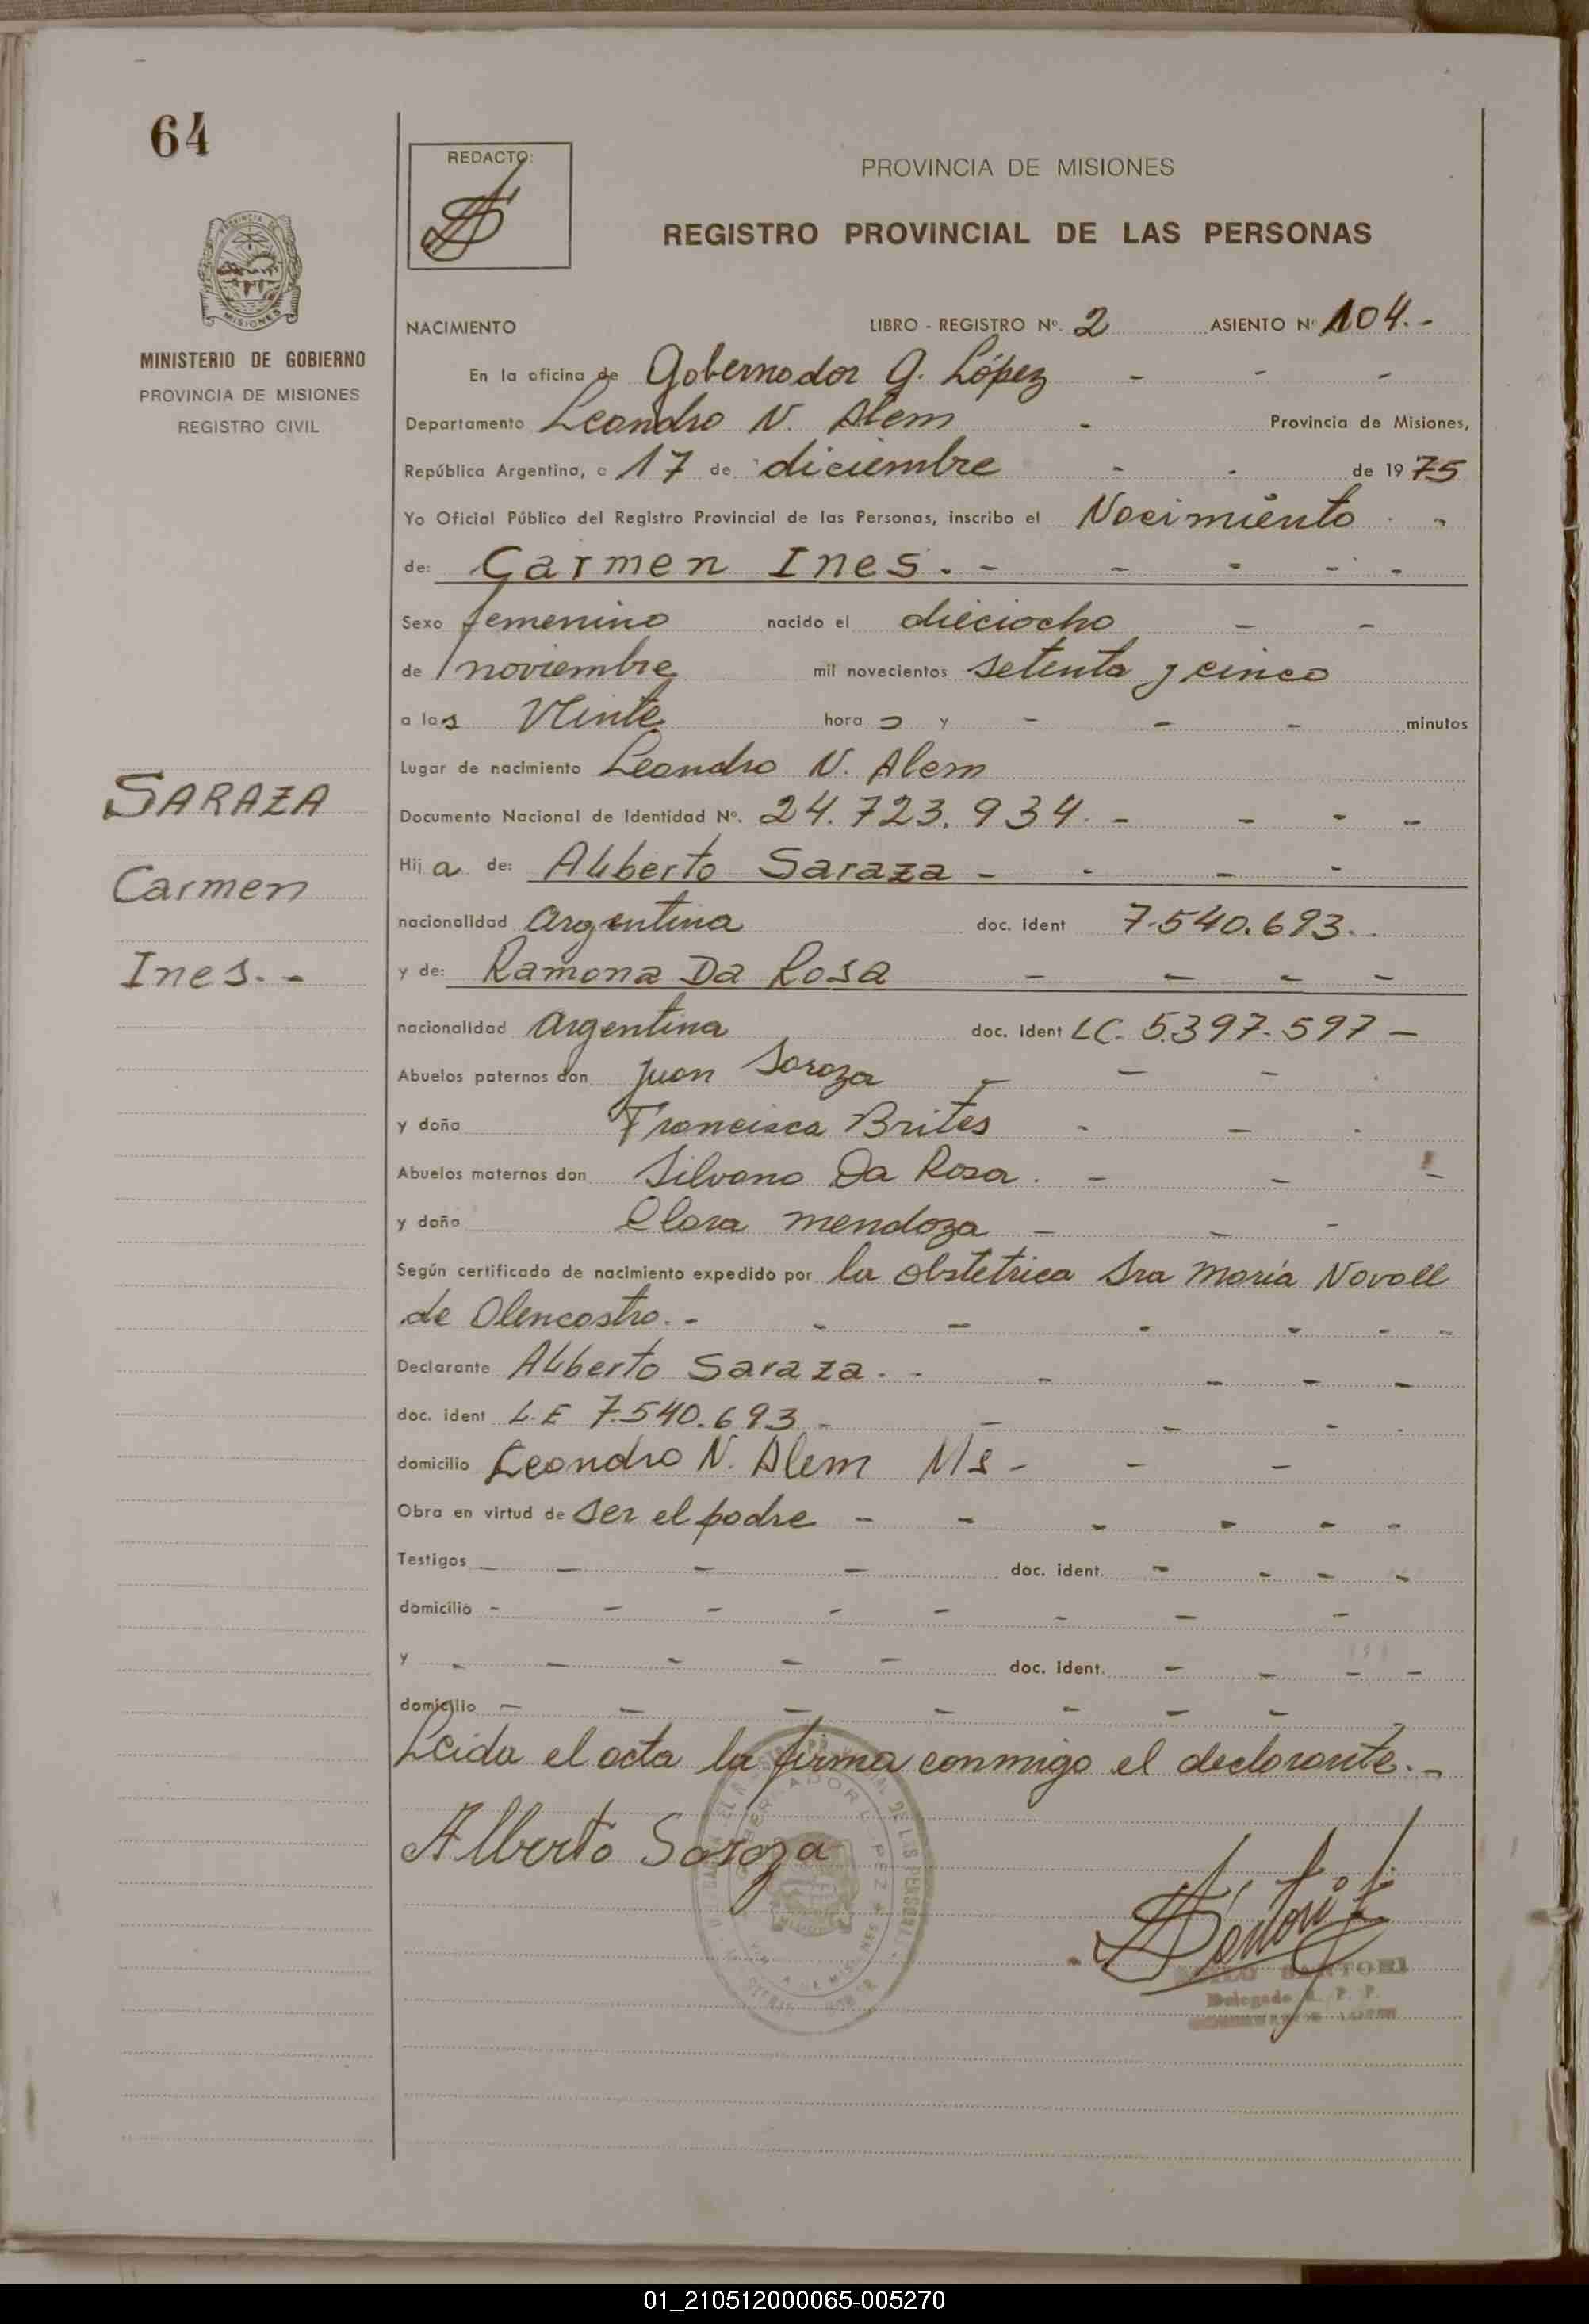 64
REDACTO:
PROVINCIA DE MISIONES
REGISTRO PROVINCIAL DE LAS PERSONAS
MINISTERIO DE GOBIERNO
PROVINCIA DE MISIONES
REGISTRO CIVIL
NACIMIENTO LIBRO - REGISTRO Nº. 2 ASIENTO Nº 104.-
En la oficina de Gobernador G. López - - -
Departamento Leandro N. Alem - Provincia de Misiones,
República Argentina, a 17 de diciembre - - de 1975
Yo Oficial Público del Registro Provincial de las Personas, inscribo el Nacimiento
de: Carmen Ines. - - - - -
Sexo femenino nacido el dieciocho - -
de noviembre mil novecientos setenta y cinco
a las Veinte hora s y - - - minutos
Lugar de nacimiento Leandro N. Alem
SARAZA
Carmen
Ines. -
Documento Nacional de Identidad Nº. 24.723.934. - - - -
Hij a de: Alberto Saraza - - - -
nacionalidad argentina doc. ident 7.540.693.
y de: Ramona Da Rosa - - - -
nacionalidad argentina doc. ident LC. 5.397.597 -
Abuelos paternos don Juan Saraza - - -
y doña Francisca Brites - - -
Abuelos maternos don Silvano Da Rosa. - - -
y doña Clara Mendoza - - -
Según certificado de nacimiento expedido por la obstetrica Sra María
de Olencastro. - - - - - - -
Declarante Alberto Saraza. - - - - -
doc. ident L.E 7.540.693 - - - - -
domicilio Leandro N. Alem Ms - - -
Obra en virtud de ser el padre - - - - - - -
Testigos - - - - doc. ident. - - - -
domicilio - - - - - - - -
y - - - - - doc. ident. - - - -
domicilio - - - - - - - -
Leida el acta la firma conmigo el declarante. -
Alberto Saroza
SANTORI
Delegado R. P. P.
01_210512000065-005270